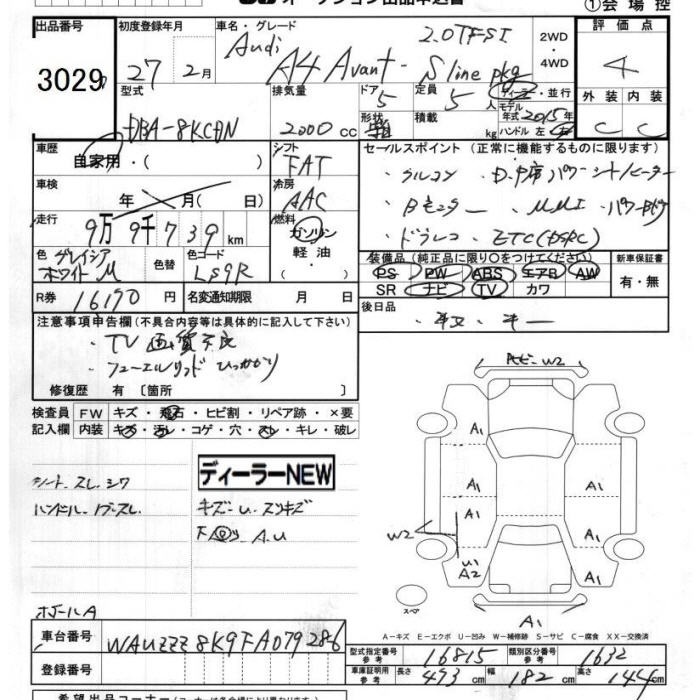 オークション出品申込書 ①会場控
出品番号 初度登録年月 車名・グレード 評価点
3029 27年 2月 Audi A4 Avant 2.0TFSI S line pkg 2WD・4WD 4
型式 排気量 ドア 定員 ディーラー・並行 外装 内装
DBA-8KCDN 2000cc 5 5人 C C
形状 積載 kg モデル年式 2015年 ハンドル 左・右
車歴 シフト セールスポイント(正常に機能するものに限ります)
自家用・( ) FAT
・クルコン ・D.P席パワーシート/ヒーター
車検 冷房
年 月( 日) AAC
・Bモニター ・MMI ・パワーBゲート
走行 燃料
9万9千739km ガソリン・軽油・( )
・ドラレコ ETC(DSRC)
色 グレイシアホワイトM 色替 色コード LS9R
装備品(純正品に限り○をつけてください) 新車保証書
PS PW ABS エアB AW 有・無
SR ナビ TV カワ
R券 16190円 名変通知期限 月 日
後日品
・取・キー
注意事項申告欄(不具合内容等は具体的に記入して下さい)
・TV画質不良
・フューエルリッド ひっかかり
修復歴 有〔箇所 〕
検査員 FW キズ・飛石・ヒビ割・リペア跡・×要
記入欄 内装 キズ・汚レ・コゲ・穴・スレ・キレ・破レ
ディーラーNEW
シート スレ シワ
キズ-u スリキズ
ハンドル
A.U
W2
A1
A1
A1
A1
A1
W2
U1
A2
A1
スペア
A1
ホイールA
A-キズ E-エクボ U-凹み W-補修跡 S-サビ C-腐食 XX-交換済
車台番号 WAUZZZ8K9FA079286
型式指定番号 参考 16815 類別区分番号 参考 1632
登録番号
車庫証明用 参考 長さ 473cm 幅 182cm 高さ 144cm
希望出品コーナー